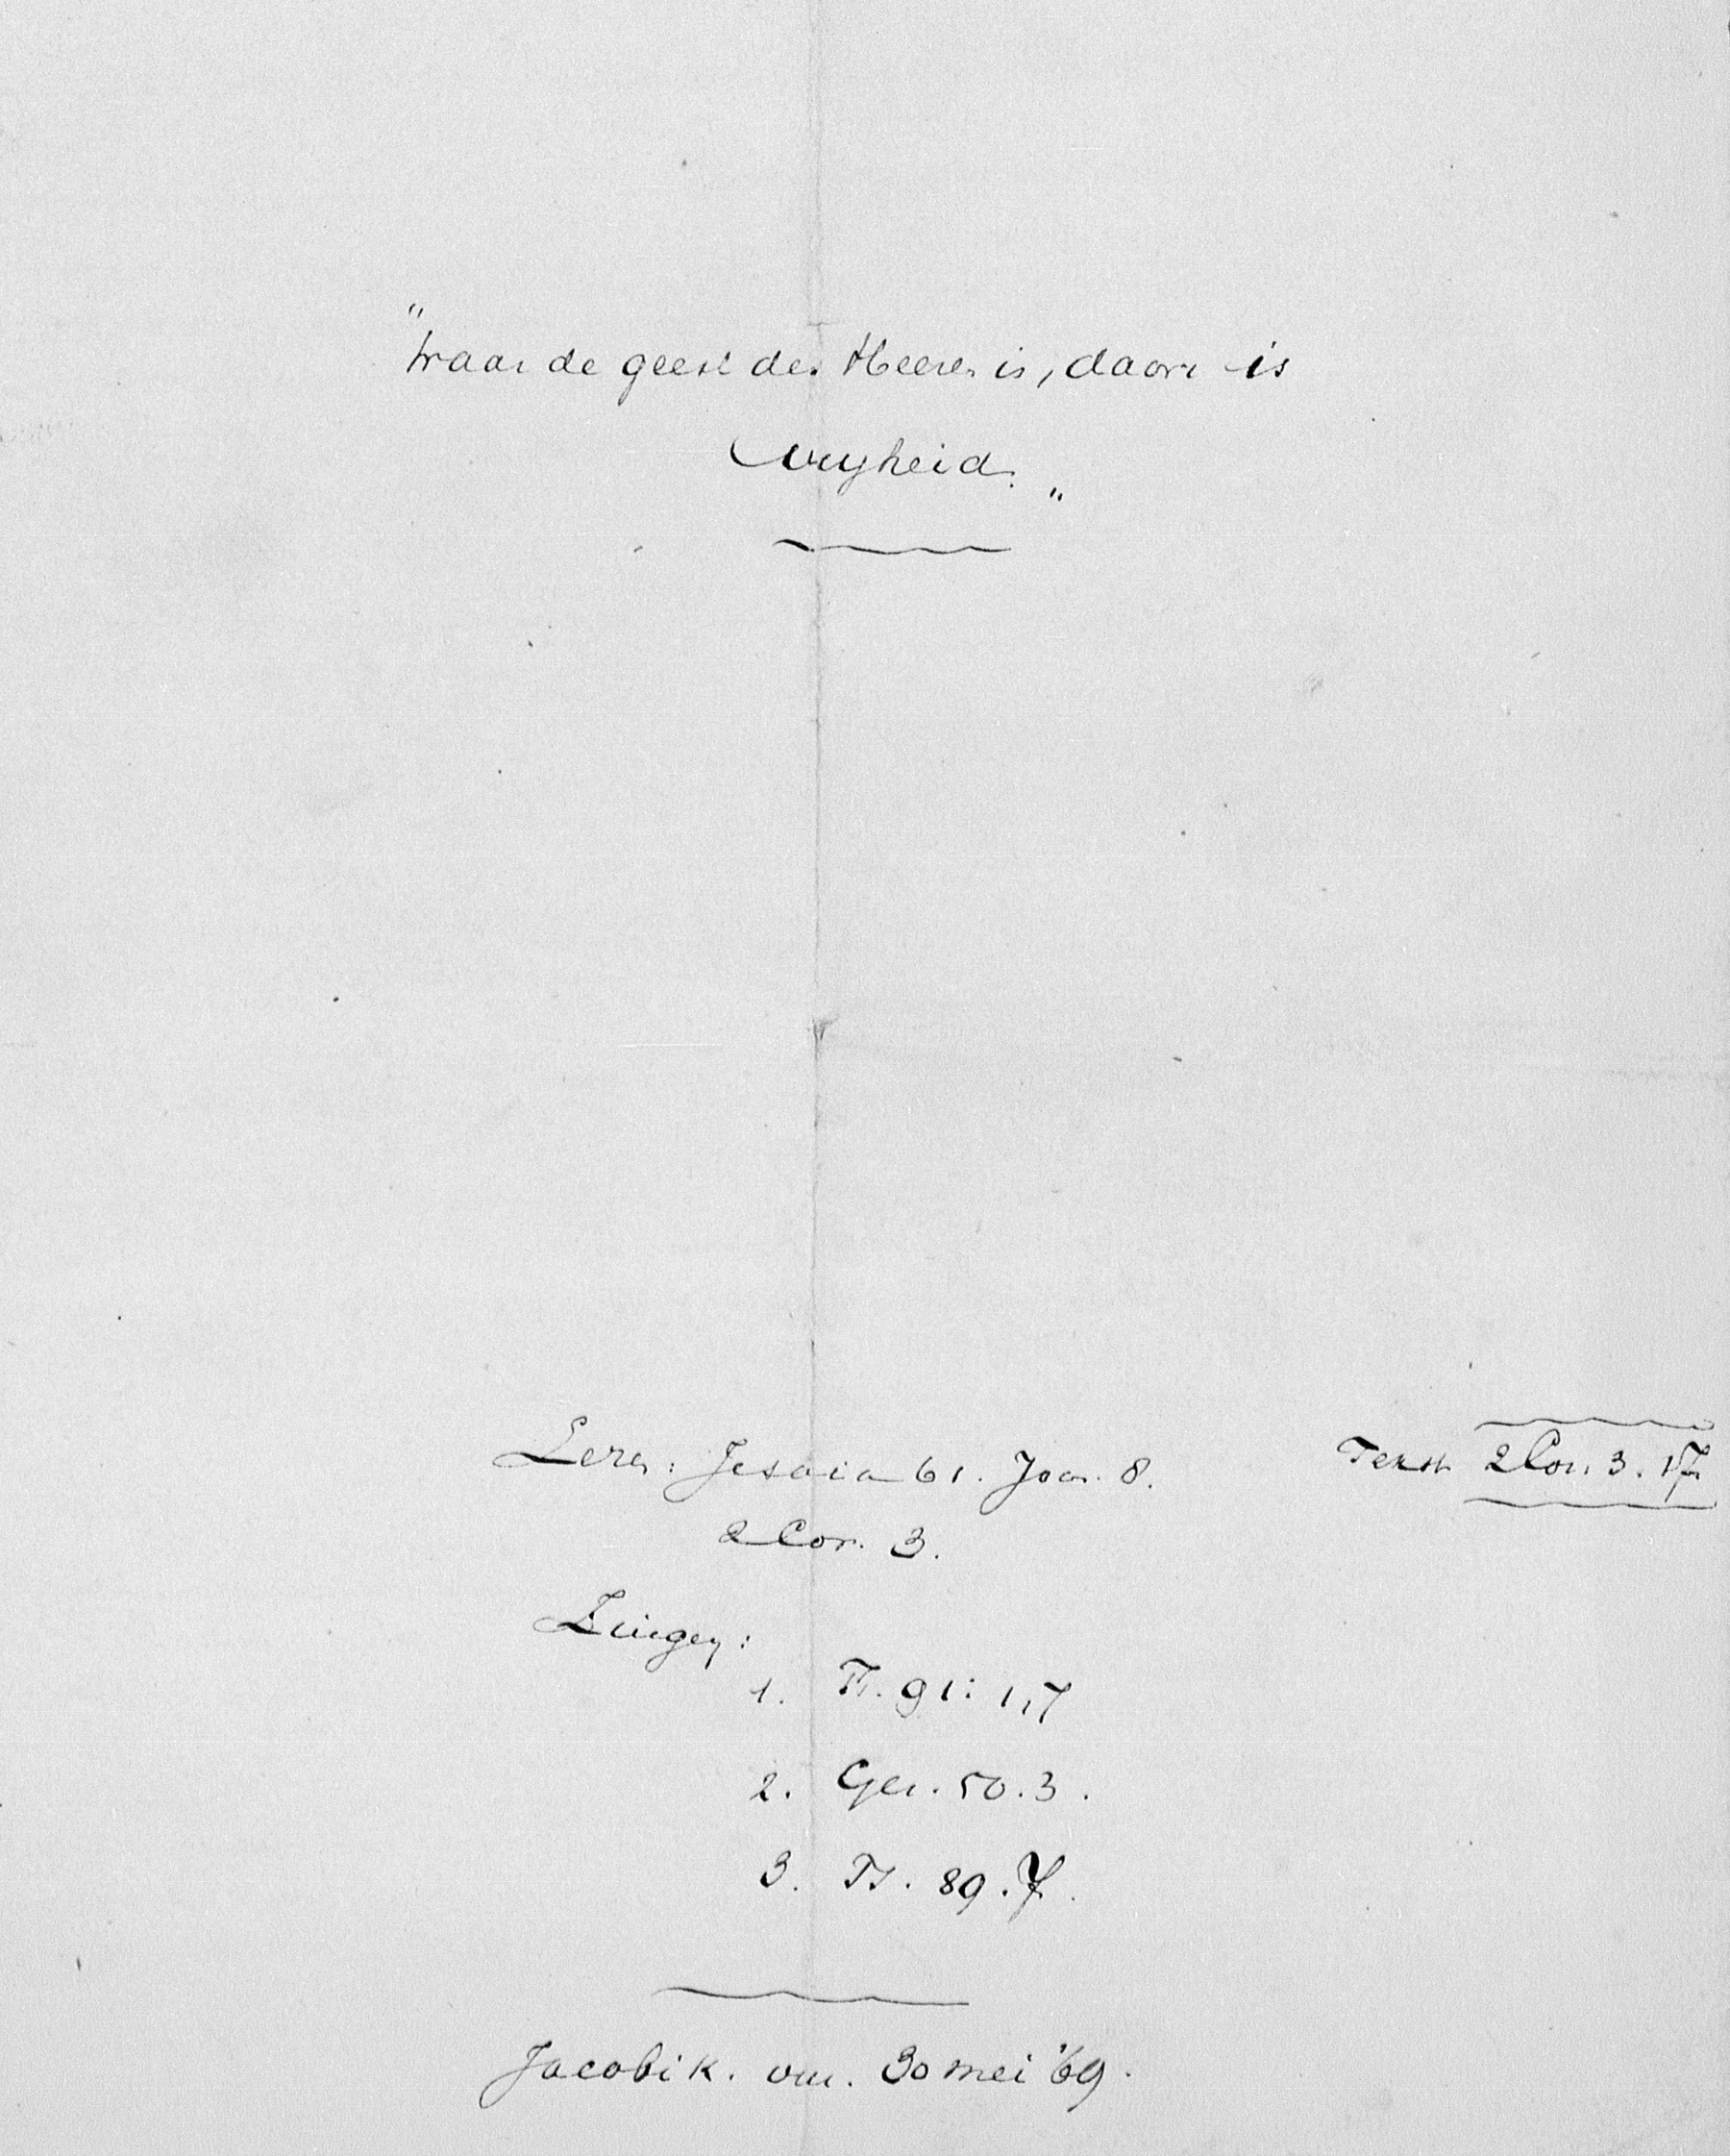 "Waar de geest des Heeren is, daar is
vryheid."
Lezen: Jesaia 61. Joa. 8.
Tekst 2 Cor. 3. 17
2 Cor. 3.
Zingen:
1. Ps. 91: 1,7
2. Gez. 50. 3.
3. Ps. 89. 7.
Jacobi k. vm. 30 mei '69.